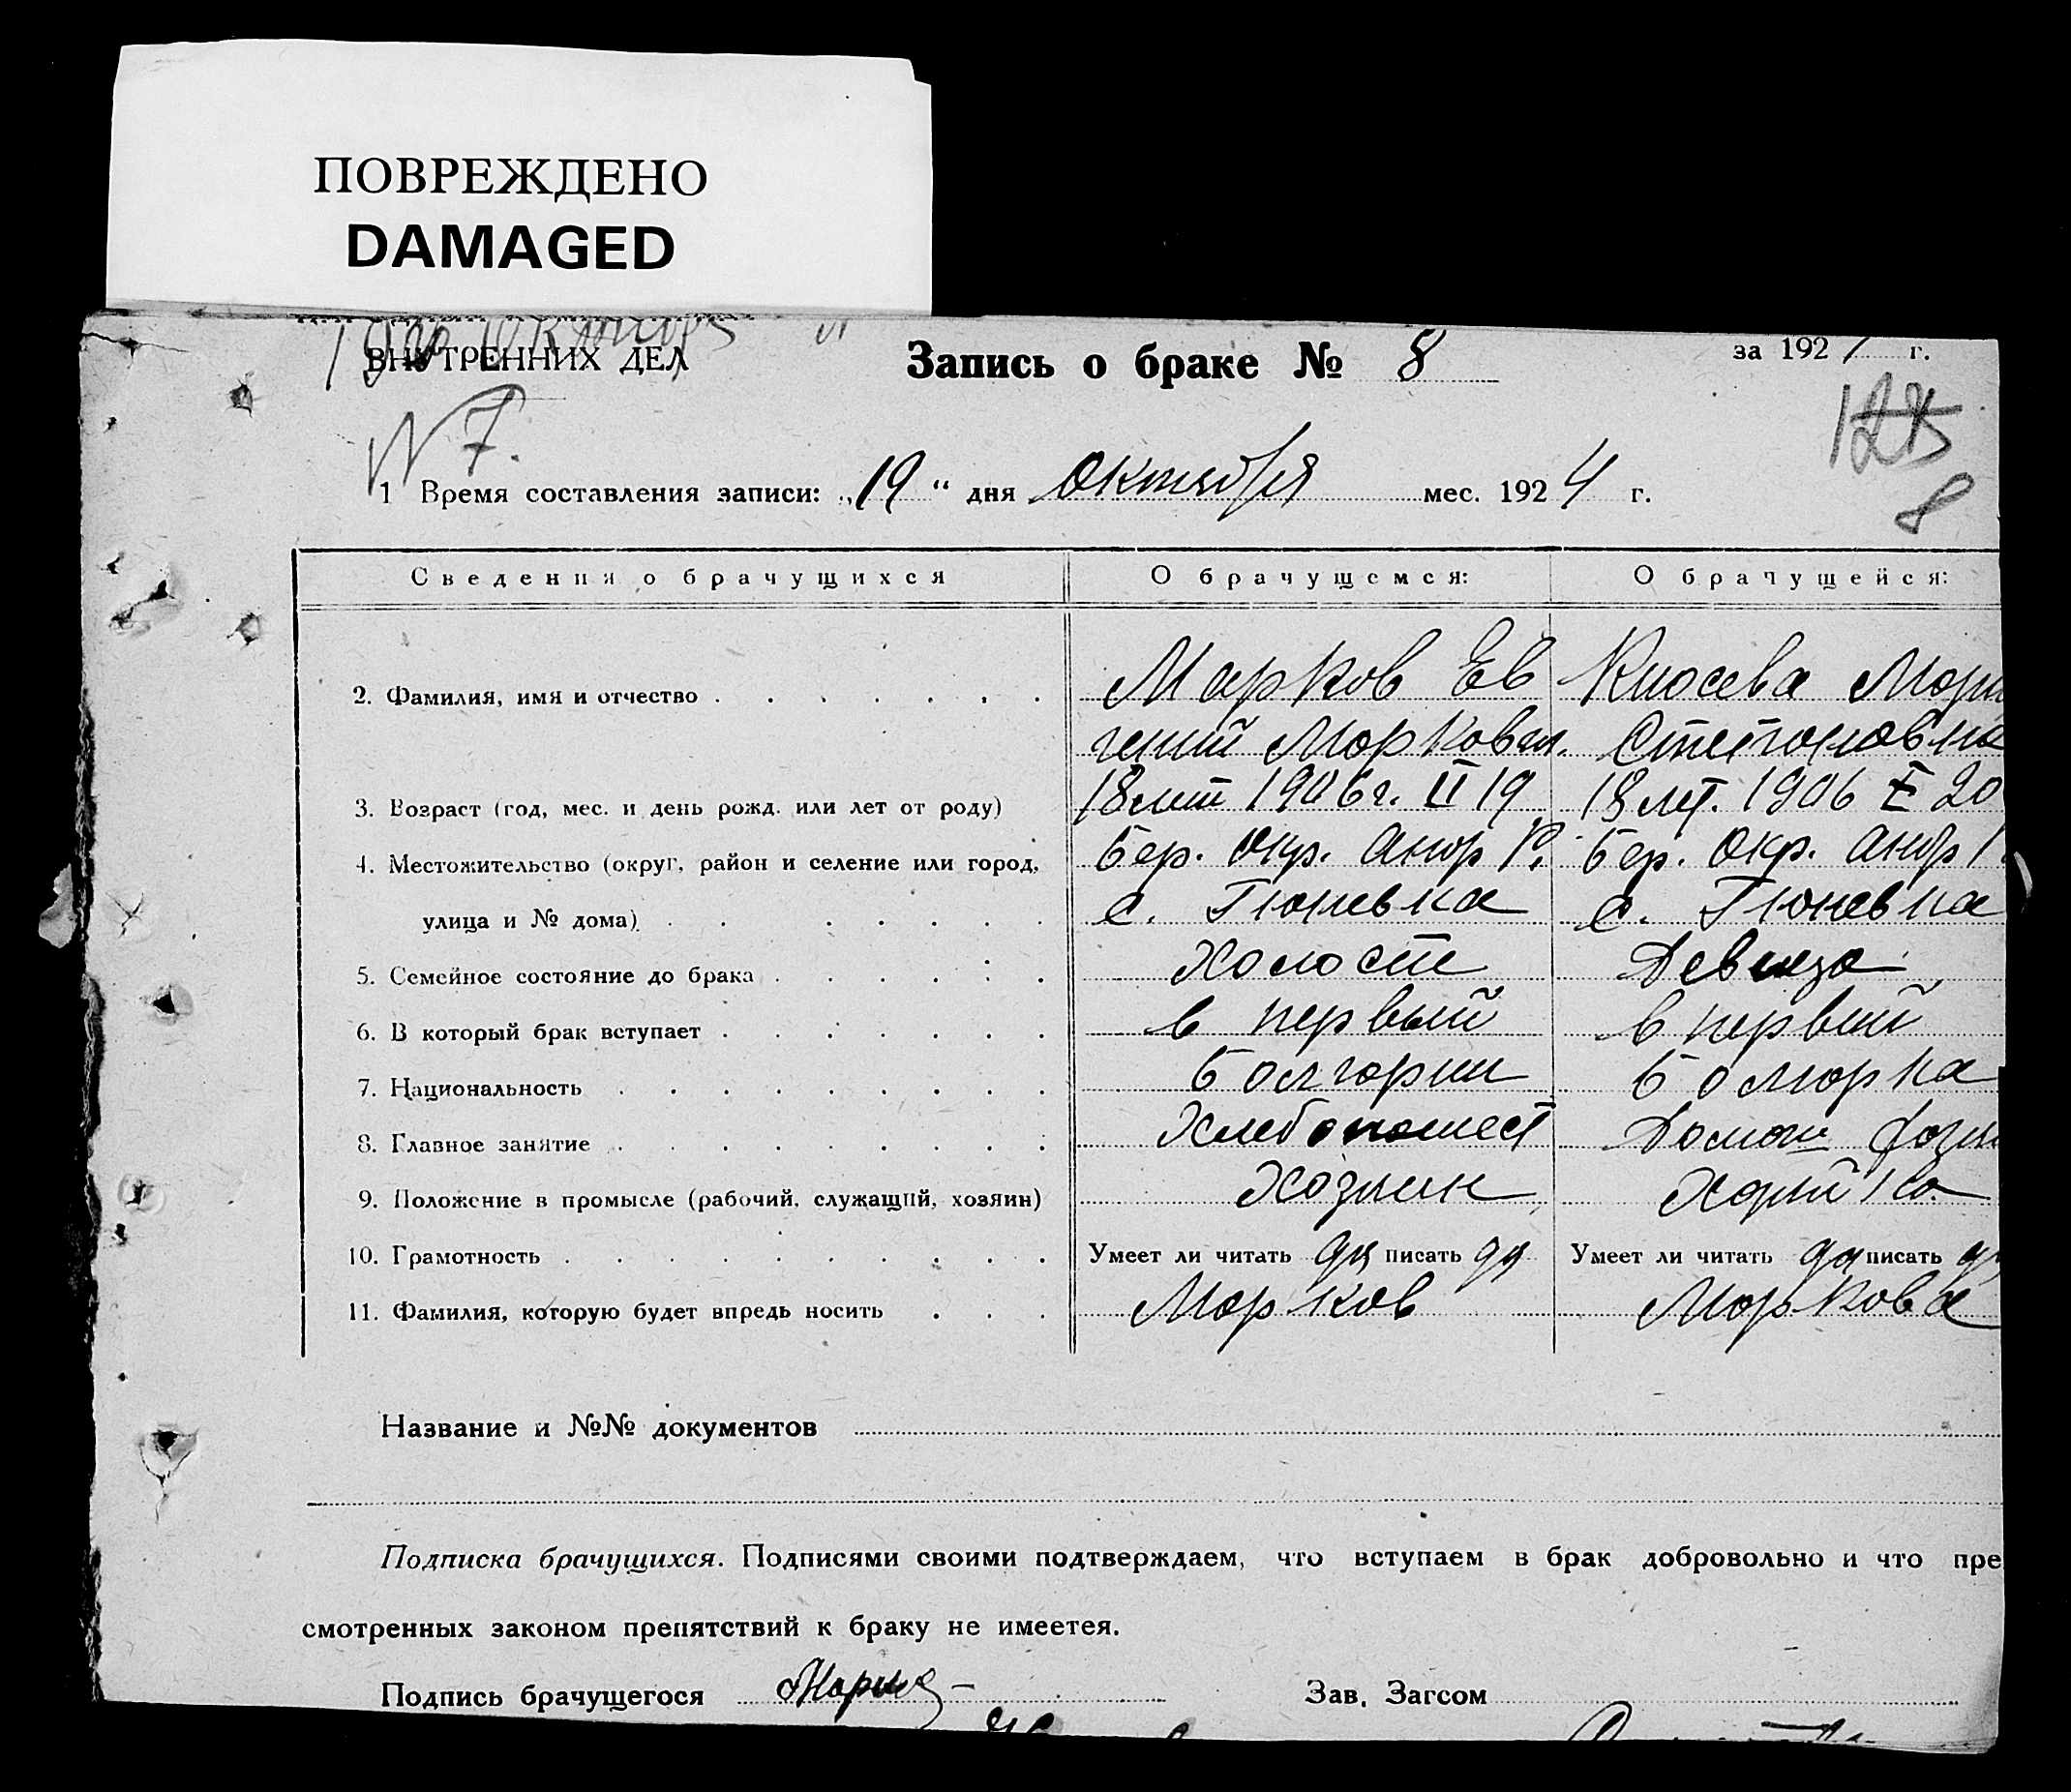 ПОВРЕЖДЕНО
DAMAGED
ВНУТРЕННИХ ДЕЛ
Запись о браке № 8
за 192 г.
N 7.
8
1 Время составления записи: „19“ дня Октября мес. 1924 г.
Сведения о брачущихся О брачущемся: О брачущейся:
2. Фамилия, имя и отчество Марков Ев Киосева Мари
гений Маркович. Степановна
3. Возраст (год, мес. и день рожд. или лет от роду) 18 лет 1906 г. II 19 18 лет. 1906 X 20
4. Местожительство (округ, район и селение или город, Бер. Окр. Андр Р. Бер. Окр. Андр
улица и № дома) с. Гюневка с. Гюневка
5. Семейное состояние до брака Холост Девица
6. В который брак вступает в первый в первый
7. Национальность Болгарин Болгарка
8. Главное занятие Хлебопашест Домаш
9. Положение в промысле (рабочий, служащий, хозяин) Хозяин
10. Грамотность Умеет ли читать да писать да Умеет ли читать да писать да
11. Фамилия, которую будет впредь носить Марков Маркова
Название и №№ документов
Подписка брачущихся. Подписями своими подтверждаем, что вступаем в брак добровольно и что пре
смотренных законом препятствий к браку не имеетея.
Подпись брачущегося Зав. Загсом